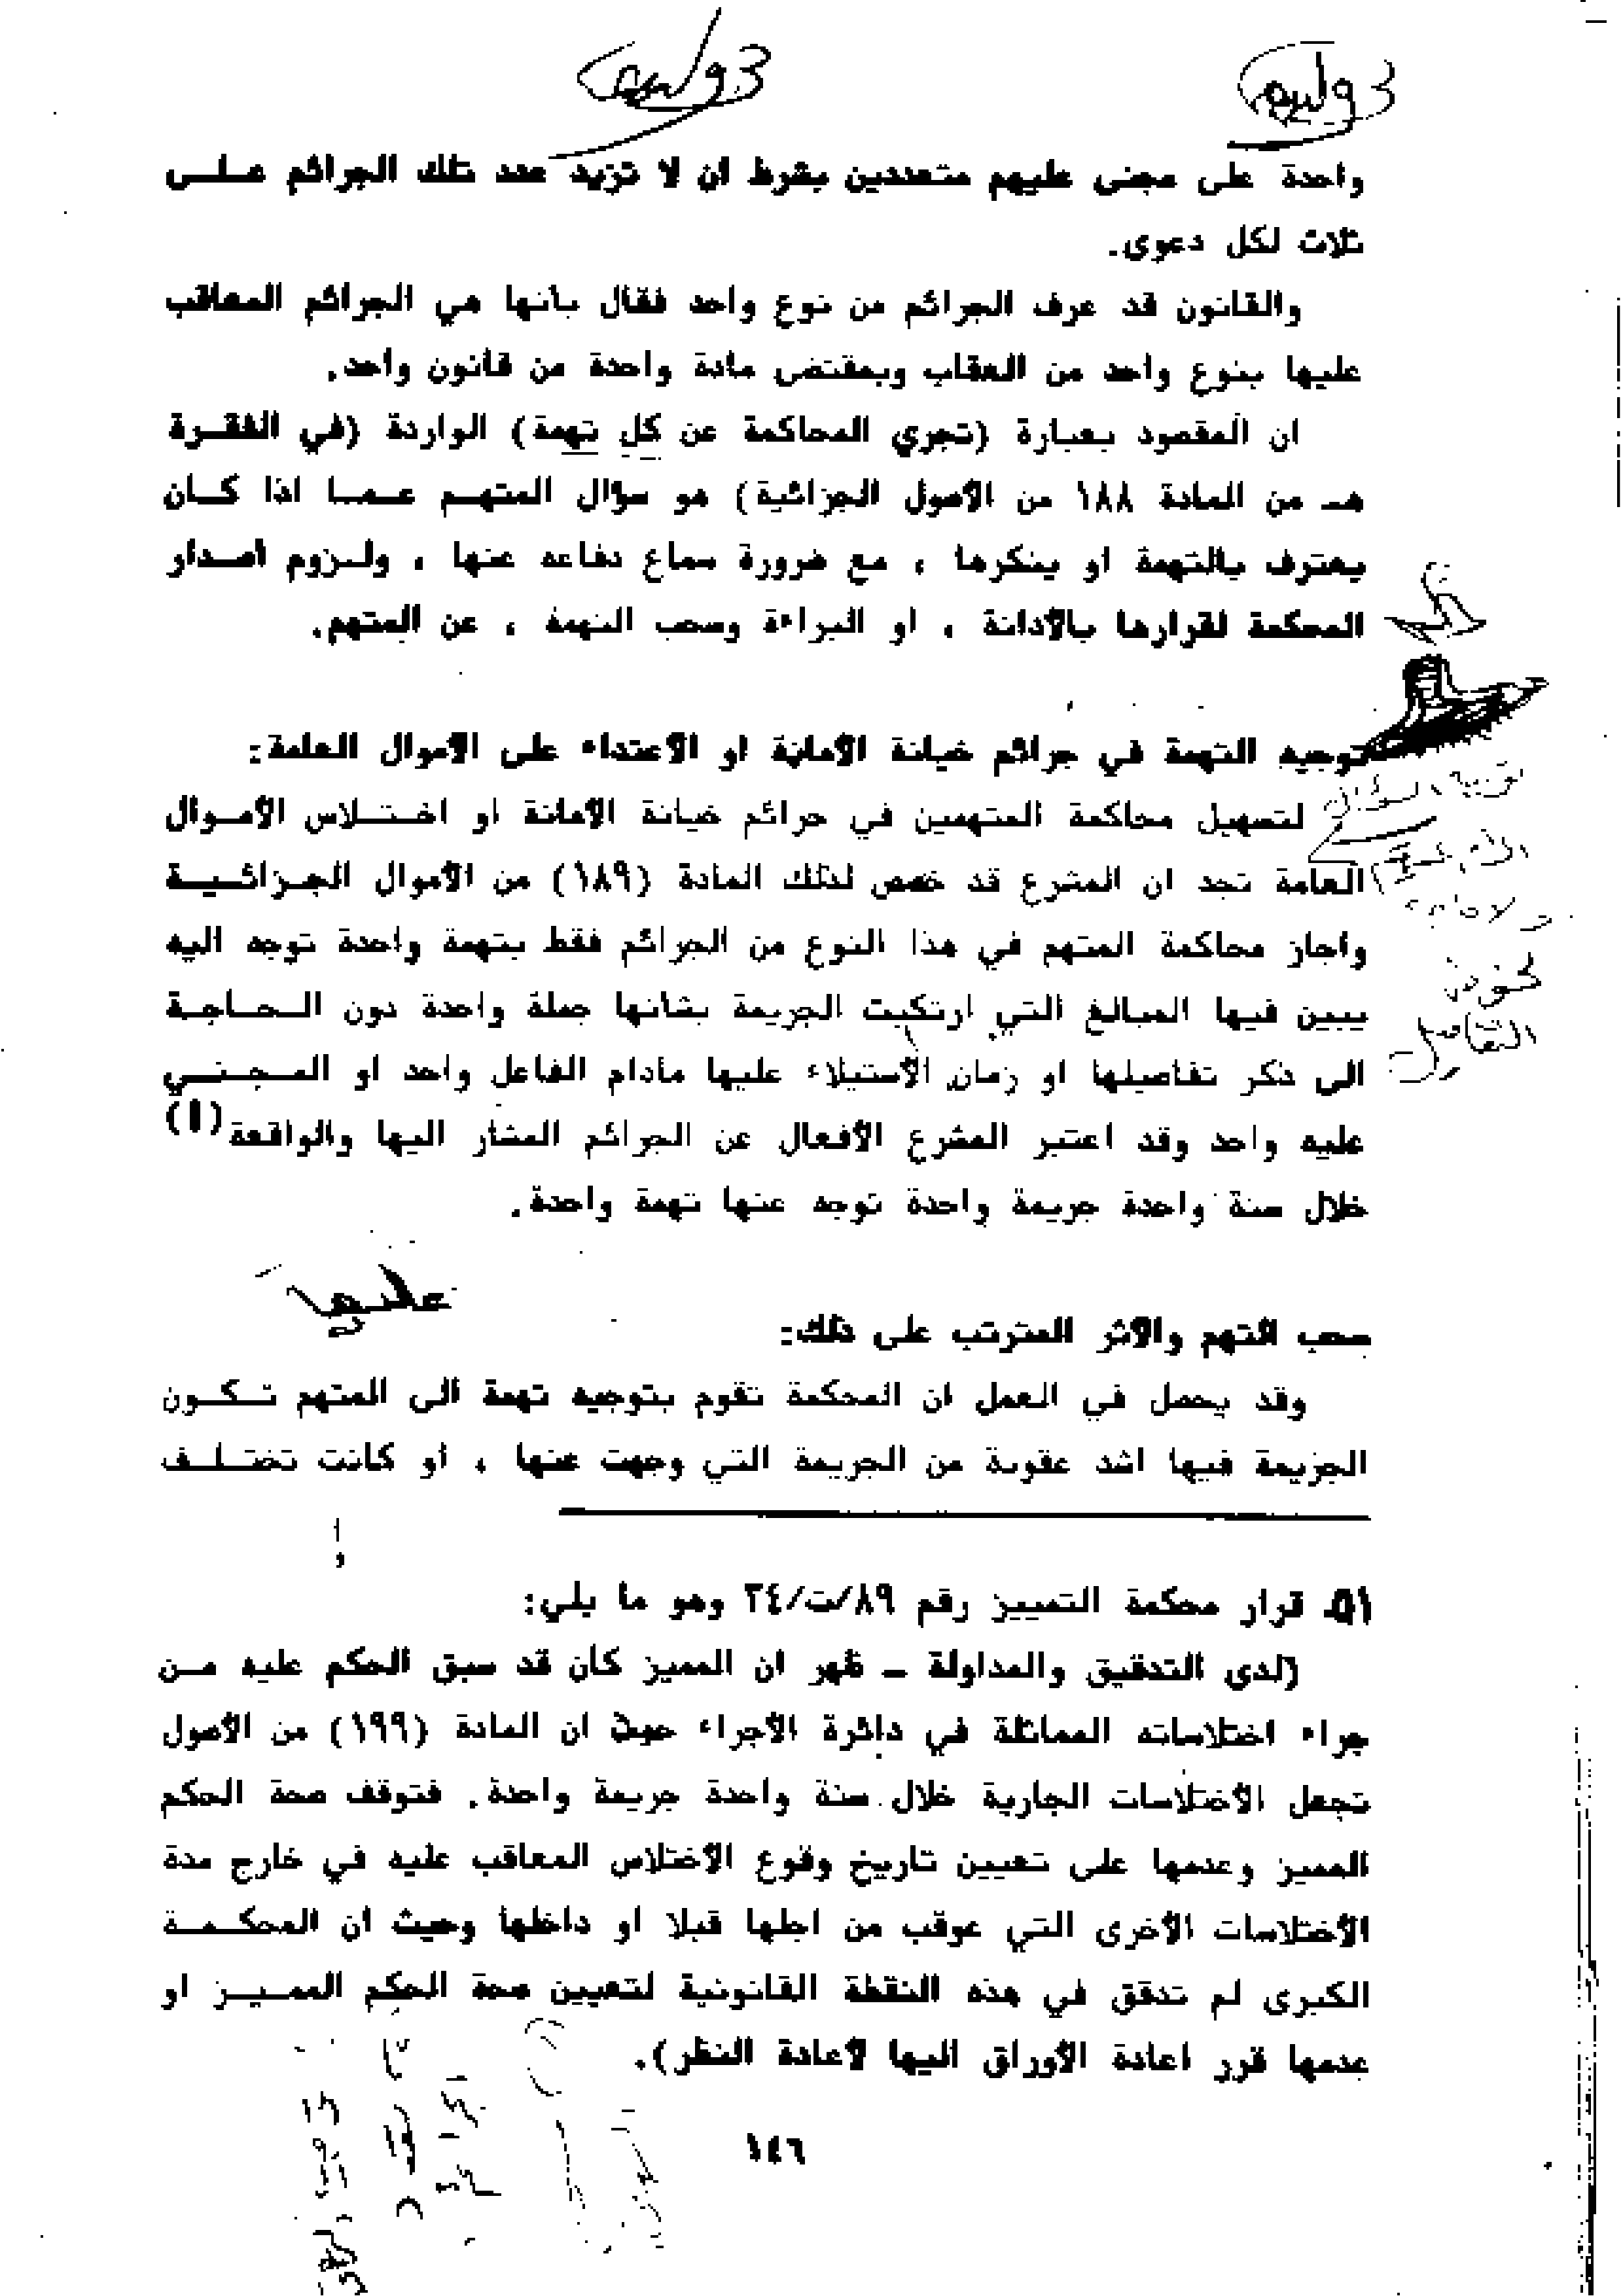 واحدة على مجنى عليهم متعددين بشرط ان لا تزيد عدد تلك الجرائم علـى
ثلاث لكل دعوى.
والقانون قد عرف الجرائم من نوع واحد فقال بأنها هي الجرائم المعاقب
عليها بنوع واحد من العقاب وبمقتضى مادة واحدة من قانون واحد.
ان المقصود بعبارة (تجري المحاكمة عن كل تهمة) الواردة (في الفقـرة
هـ من المادة ١٨٨ من الأصول الجزائية) هو سؤال المتهـم عـمـا اذا كـان
يعترف بالتهمة او ينكرها ، مع ضرورة سماع دفاعه عنها ، ولـزوم أصـدار
المحكمة لقرارها بالأدانة ، او البراءة وسحب التهمة ، عن المتهم.
توجيه التهمة في جرائم خيانة الأمانة او الأعتداء على الأموال العامة:
لتسهيل محاكمة المتهمين في جرائم خيانة الأمانة او اخـتـلاس الأمـوال
العامة نجد ان المشرع قد خصص لذلك المادة (١٨٩) من الأموال الجـزائـيـة
واجاز محاكمة المتهم في هذا النوع من الجرائم فقط بتهمة واحدة توجه اليه
يبين فيها المبالغ التي ارتكبت الجريمة بشأنها جملة واحدة دون الـحـاجـة
الى ذكر تفاصيلها او زمان الأستيلاء عليها مادام الفاعل واحد او المـجـنـي
عليه واحد وقد اعتبر المشرع الأفعال عن الجرائم المشار اليها والواقعة
خلال سنة واحدة جريمة واحدة توجه عنها تهمة واحدة.
سحب التهم والأثر المترتب على ذلك:
وقد يحصل في العمل ان المحكمة تقوم بتوجيه تهمة الى المتهم تـكـون
الجريمة فيها اشد عقوبة من الجريمة التي وجهت عنها ، او كانت تختـلـف
قرار محكمة التمييز رقم ٨٩/ت/٣٤ وهو ما يلي:
(لدى التدقيق والمداولة ـ ظهر ان المميز كان قد سبق الحكم عليه مـن
جراء اختلاساته المماثلة في دائرة الأجراء حيث ان المادة (١٩٩) من الأصول
تجعل الأختلاسات الجارية خلال سنة واحدة جريمة واحدة. فتوقف صحة الحكم
المميز وعدمها على تعيين تاريخ وقوع الأختلاس المعاقب عليه في خارج مدة
الأختلاسات الأخرى التي عوقب من اجلها قبلا او داخلها وحيث ان المحكـمـة
الكبرى لم تدقق في هذه النقطة القانونية لتعيين صحة الحكم الممـيـز او
عدمها قرر اعادة الأوراق اليها لأعادة النظر).
١٤٦